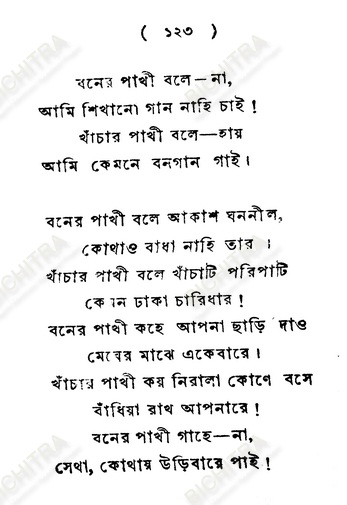 ( ১২৩ )
বনের পাখী বলে—না,
আমি শিখানো গান নাহি চাই !
খাঁচার পাখী বলে—হায়
আমি কেমনে বনগান গাই ।
বনের পাখী বলে আকাশ ঘননীল,
কোথাও বাধা নাহি তার ।
খাঁচার পাখী বলে খাঁচাটি পরিপাটি
কেমন ঢাকা চারিধার !
বনের পাখী কহে আপনা ছাড়ি দাও
মেঘের মাঝে একেবারে ।
খাঁচার পাখী কয় নিরালা কোণে বসে
বাঁধিয়া রাখ আপনারে !
বনের পাখী গাহে—না,
সেথা, কোথায় উড়িবারে পাই !
BICHITRA
BICHITRA
BICHITRA
BICHITRA